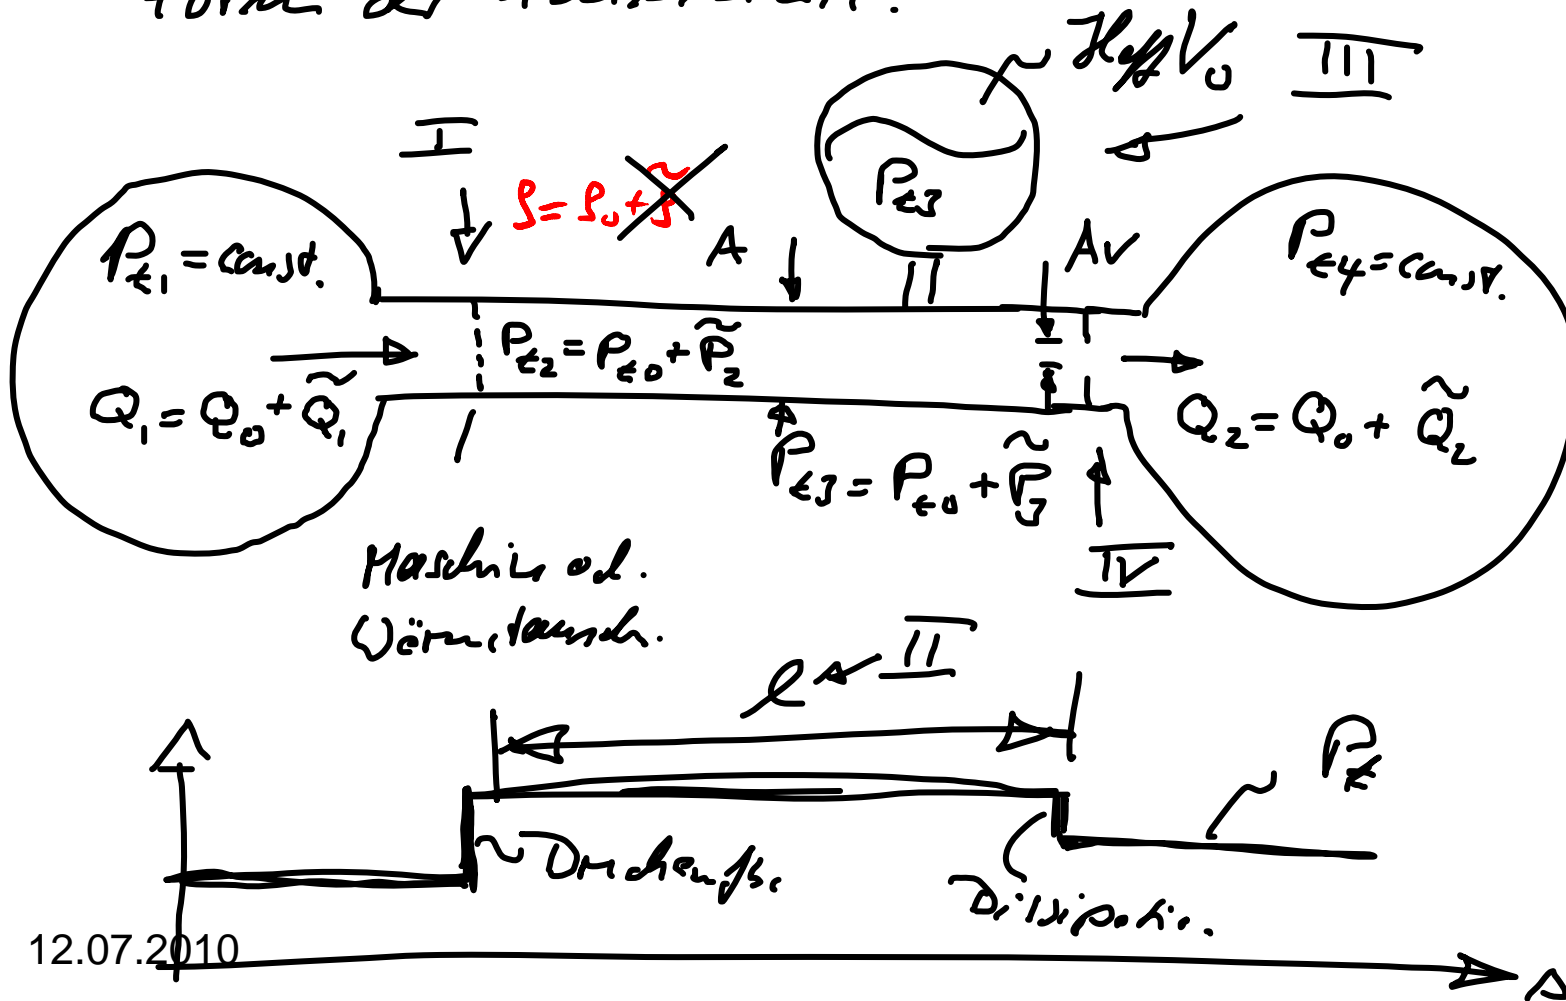 der
III
I
ρ = ρ₀ + ρ̃
P_t3
A
A_V
P_t1 = const.
P_t4 = const.
P_t2 = P_t0 + P̃_2
Q_1 = Q_0 + Q̃_1
Q_2 = Q_0 + Q̃_2
P_t3 = P_t0 + P̃_3
IV
Maschine od.
Wärmetausch.
II
l
P_t
Dissipation.
12.07.2010